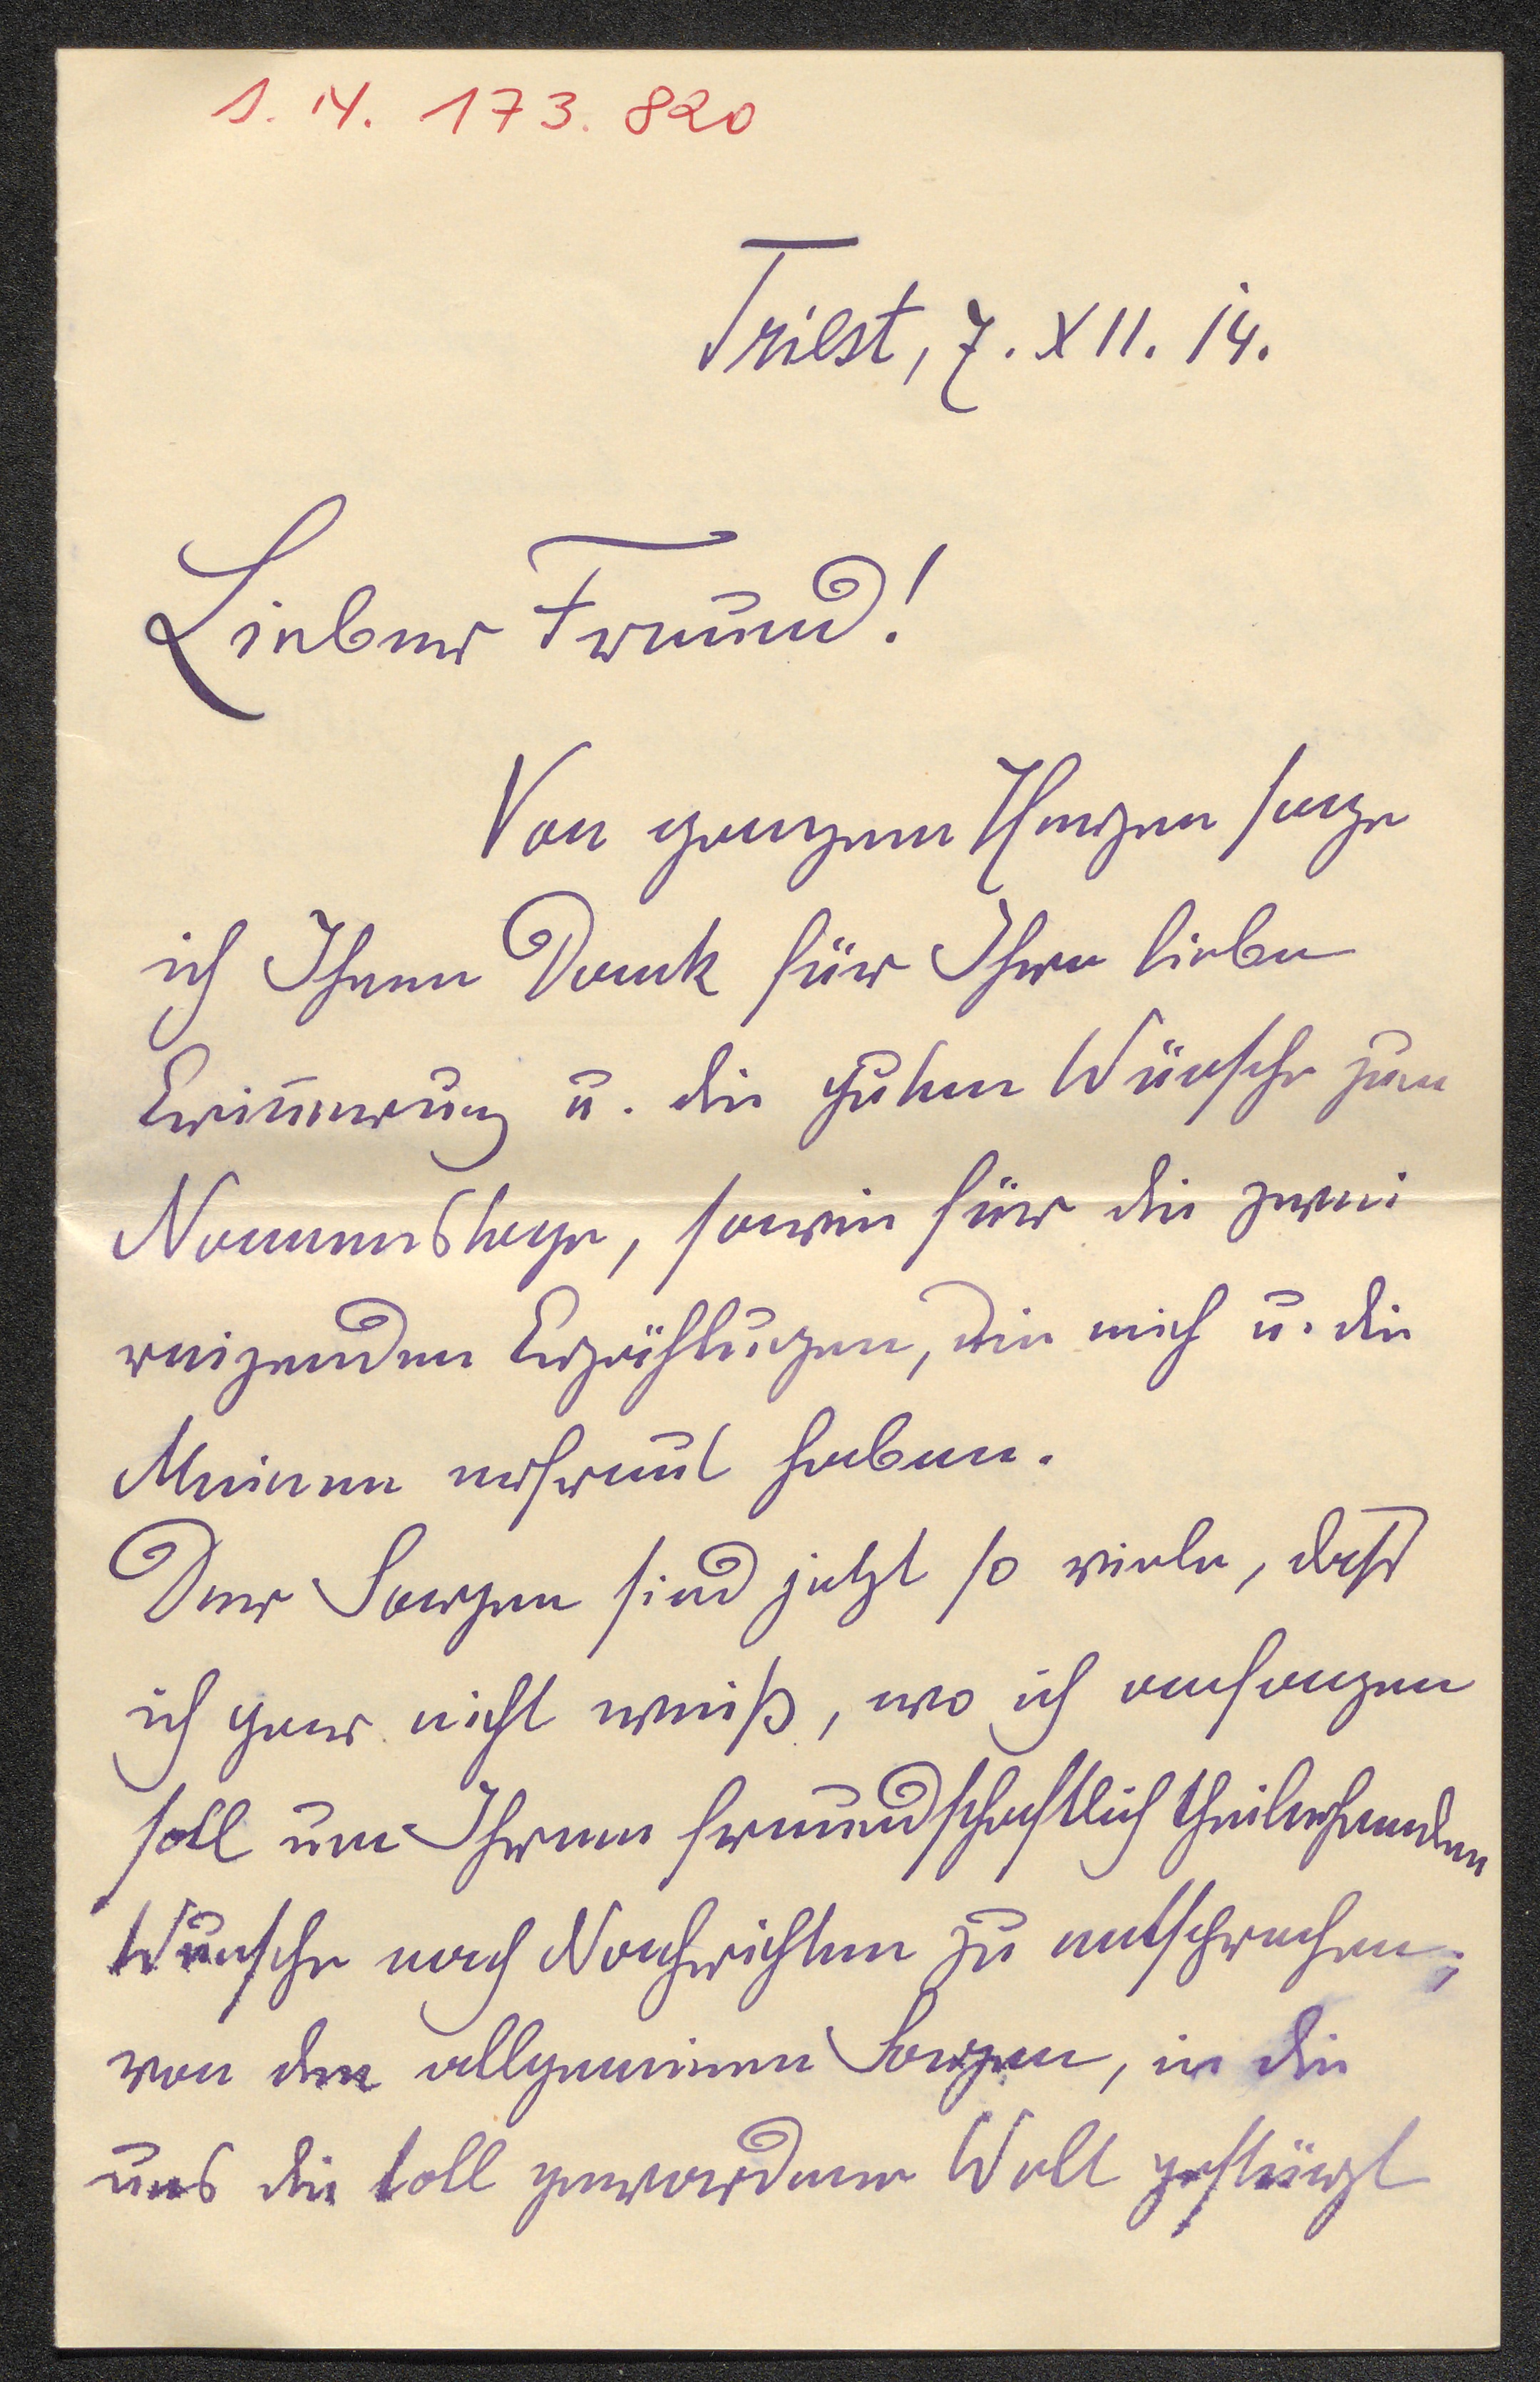 I. N. 173.820
Triest, 7. XII. 14.
Lieber Freund!
Von ganzem Herzen sage
ich Ihnen Dank für Ihre liebe
Erinnerung u. die guten Wünsche zum
Namenstage, sowie für die zwei
reizenden Erzählungen, die mich u. die
Meinen erfreut haben.
Der Sorgen sind jetzt so viele, dass
ich gar nicht weiß, wo ich anfangen
soll um Ihrem freundschaftlich theilnehmenden
Wunsche nach Nachrichten zu entsprechen;
von den allgemeinen Sorgen, in die
uns die toll gewordene Welt gestürzt